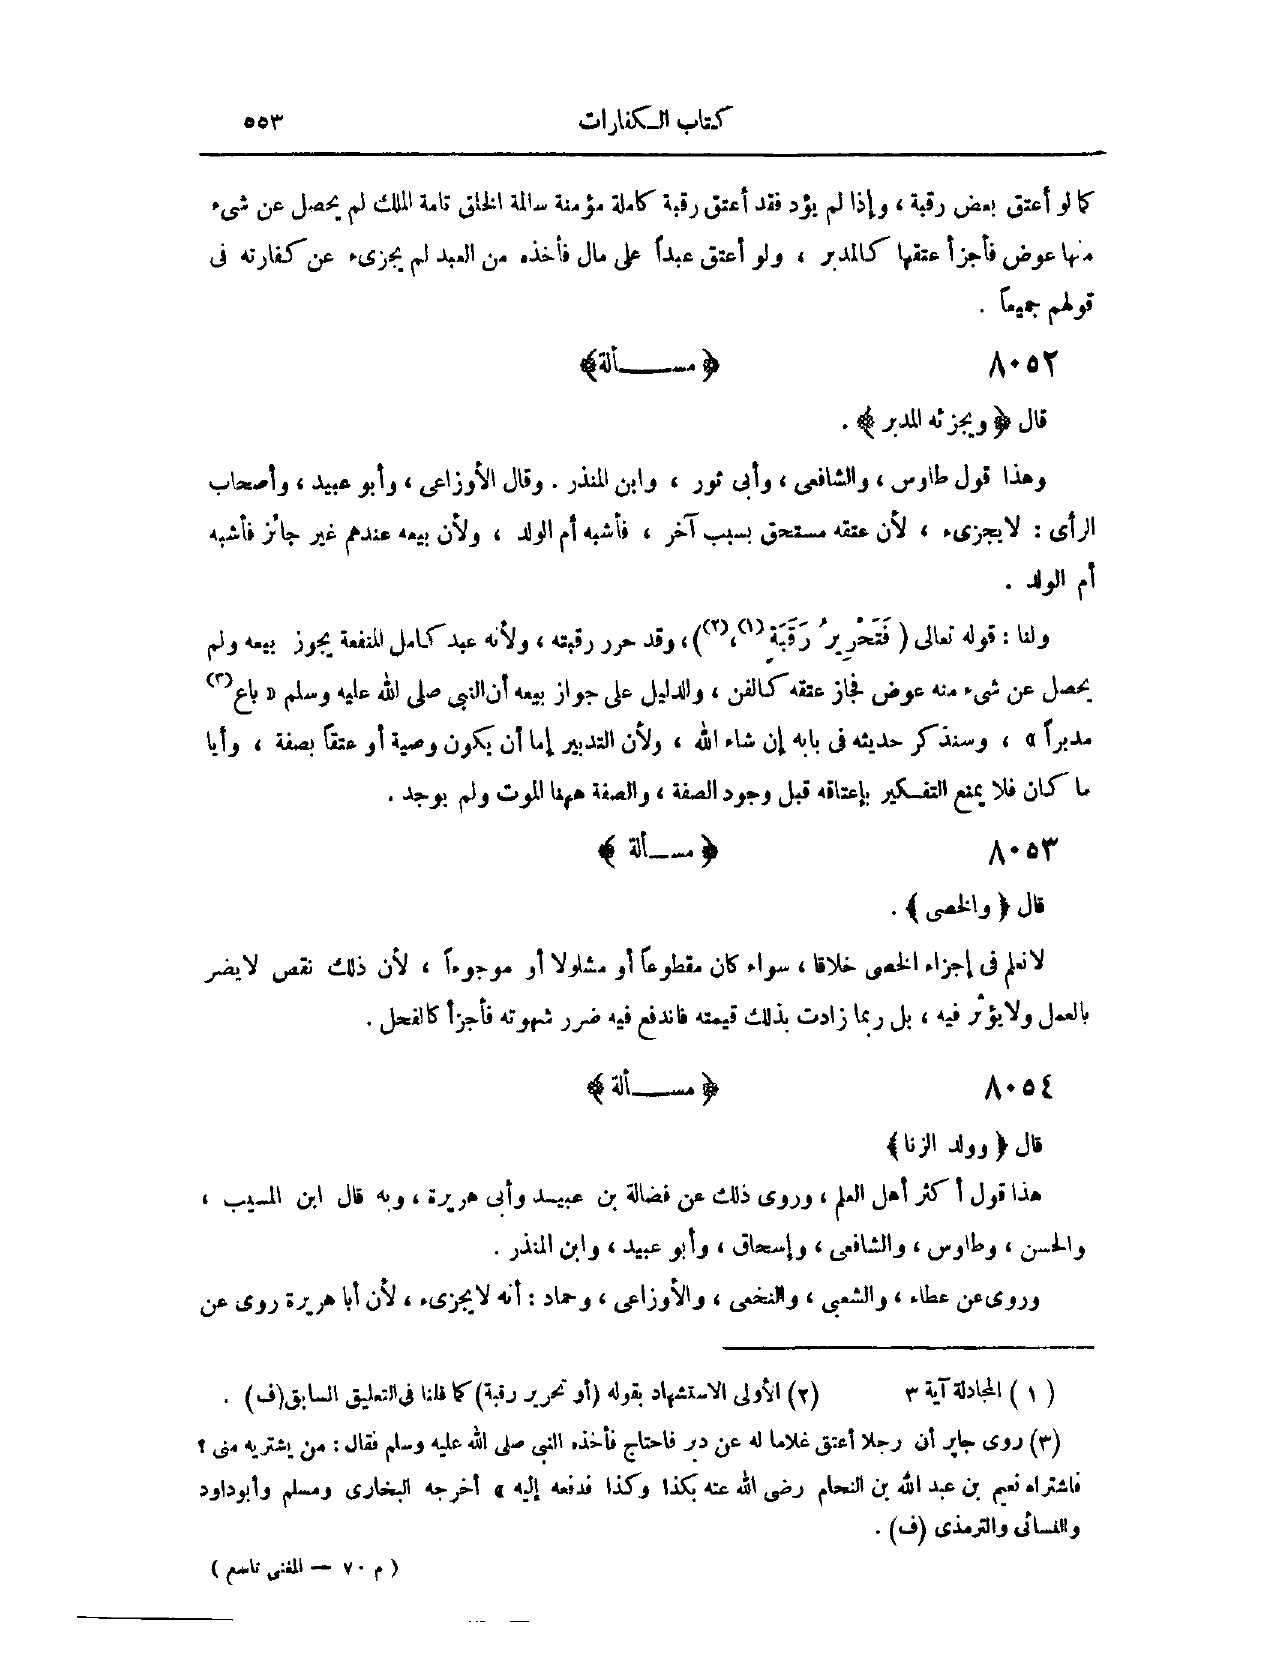 كتاب الكفارات ٥٥٣
كما لو أعتق بعض رقبة ، وإذا لم يؤد فقد أعتق رقبة كاملة مؤمنة سالمة الخلق تامة الملك لم يحصل عن شىء
منها عوض فأجزأ عتقها كالمدبر ، ولو أعتق عبداً على مال فأخذه من العبد لم يجزىء عن كفارته فى
قولهم جميعاً .
٨٠٥٢ ﴿ مسألة ﴾
قال ﴿ ويجزئه المدبر ﴾ .
وهذا قول طاوس ، والشافعى ، وأبى ثور ، وابن المنذر . وقال الأوزاعى ، وأبو عبيد ، وأصحاب
الرأى : لا يجزىء ، لأن عتقه مستحق بسبب آخر ، فأشبه أم الولد ، ولأن بيعه عندهم غير جائز فأشبه
أم الولد .
ولنا : قوله تعالى ( فَتَحْرِيرُ رَقَبَةٍ (١)،(٢) ) ، وقد حرر رقبته ، ولأنه عبد كامل المنفعة يجوز بيعه ولم
يحصل عن شىء منه عوض فجاز عتقه كالقن ، والدليل على جواز بيعه أن النبى صلى الله عليه وسلم « باع (٣)
مدبراً » ، وسنذكر حديثه فى بابه إن شاء الله ، ولأن التدبير إما أن يكون وصية أو عتقاً بصفة ، وأيا
ما كان فلا يمنع التفكير بإعتاقه قبل وجود الصفة ، والصفة ههنا الموت ولم يوجد .
٨٠٥٣ ﴿ مسألة ﴾
قال ﴿ والخصى ﴾ .
لا نعلم فى إجزاء الخصى خلافا ، سواء كان مقطوعاً أو مشلولا أو موجوءاً ، لأن ذلك نقص لا يضر
بالعمل ولا يؤثر فيه ، بل ربما زادت بذلك قيمته فاندفع فيه ضرر شهوته فأجزأ كالفحل .
٨٠٥٤ ﴿ مسألة ﴾
قال ﴿ وولد الزنا ﴾
هذا قول أكثر أهل العلم ، وروى ذلك عن فضالة بن عبيد وأبى هريرة ، وبه قال ابن المسيب ،
والحسن ، وطاوس ، والشافعى ، وإسحاق ، وأبو عبيد ، وابن المنذر .
وروى عن عطاء ، والشعبى ، والنخعى ، والأوزاعى ، وحماد : أنه لا يجزىء ، لأن أبا هريرة روى عن
( ١ ) المجادلة آية ٣ (٢) الأولى الاستشهاد بقوله (أو تحرير رقبة) كما قلنا فى التعليق السابق (ف) .
(٣) روى جابر أن رجلا أعتق غلاما له عن دبر فاحتاج فأخذه النبى صلى الله عليه وسلم فقال : من يشتريه منى ؟
فاشتراه نعيم بن عبد الله بن النحام رضى الله عنه بكذا وكذا فدفعه إليه » أخرجه البخارى ومسلم وأبو داود
والنسائى والترمذى (ف) .
( م ٧٠ — المغنى تاسع )